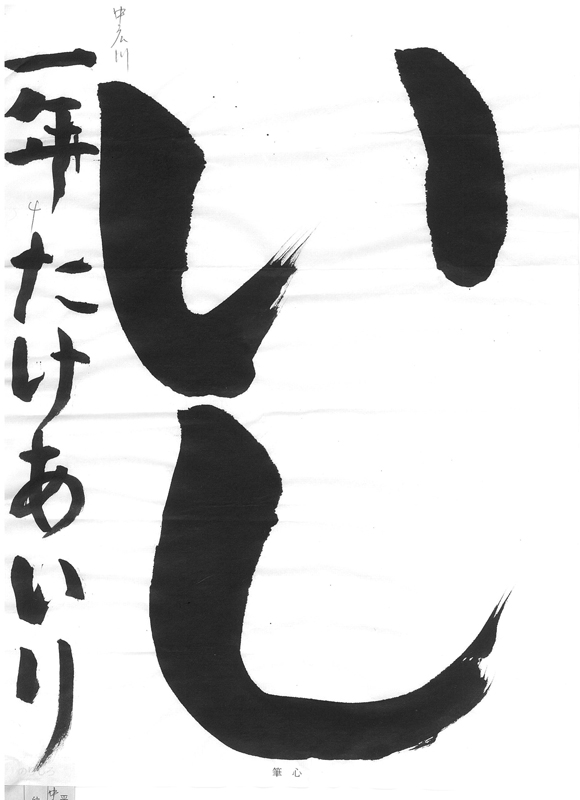 いし
一年たけあいり
中広川
4
筆心